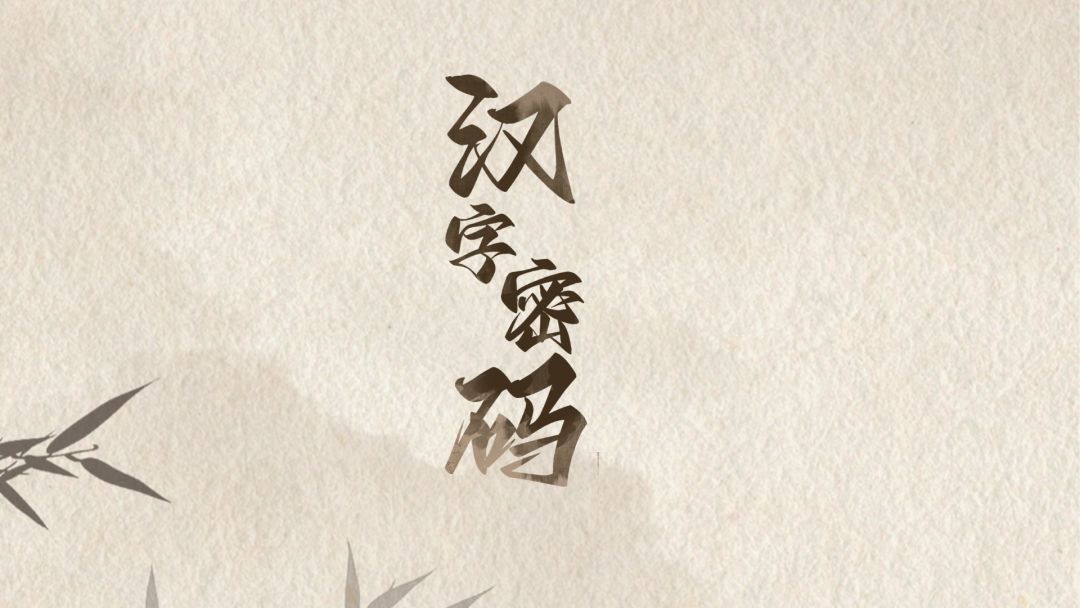 汉字密码